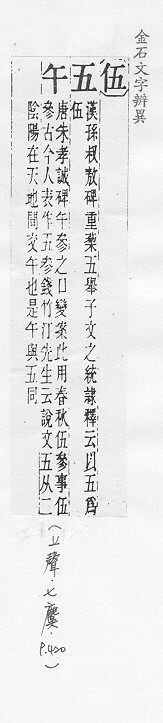 金石文字辨異
伍
五
漢孫叔敖碑重槧五舉子文之統隸釋云以五爲
伍
午
唐朱孝誠碑午參之口變案此用春秋伍參事伍
參古今人表作五參錢竹汀先生云說文五从二
陰陽在天地間交午也是午與五同
(上聲·七麌·P.420)